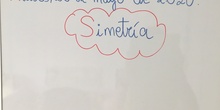 mayo de 2020.
Simetría